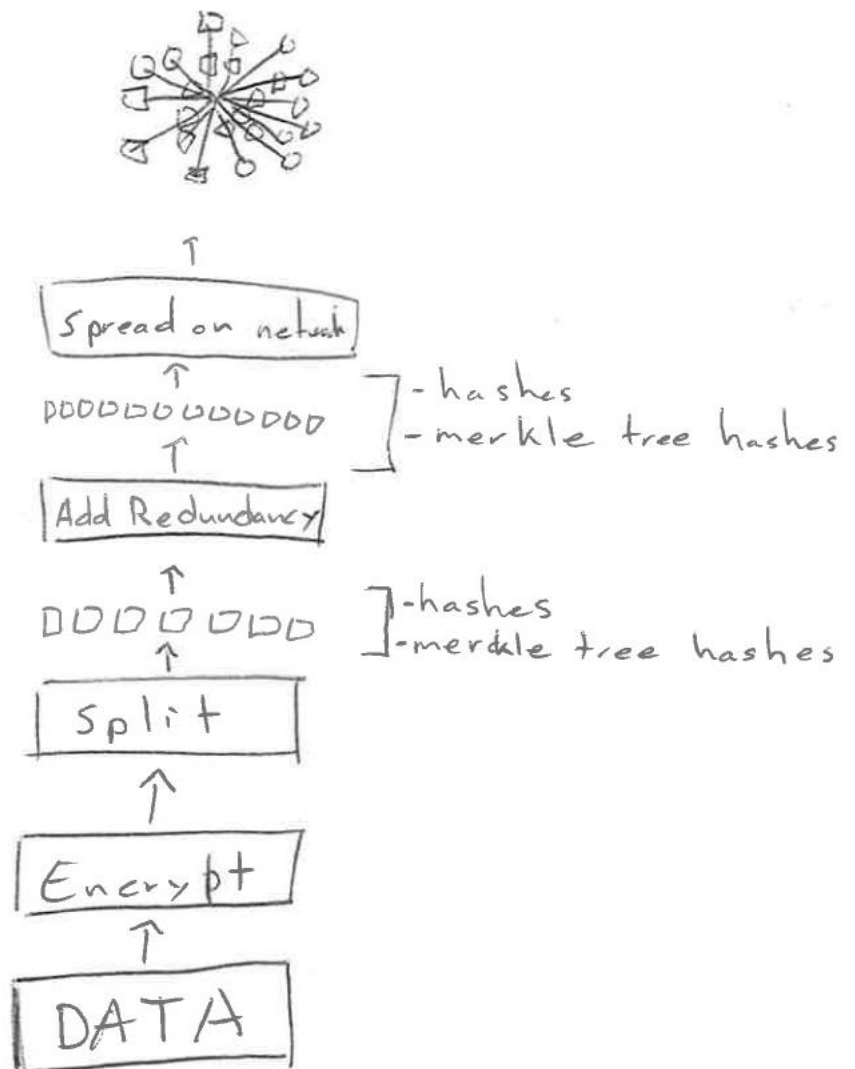 Spread on network
- hashes
- merkle tree hashes
Add Redundancy
- hashes
- merkle tree hashes
Split
Encrypt
DATA